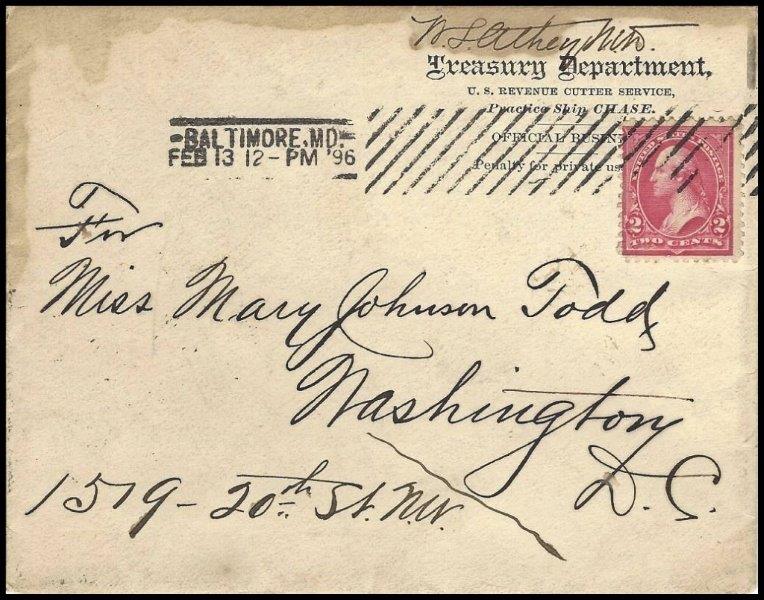 Treasury Department,
U. S. REVENUE CUTTER SERVICE,
Practice Ship CHASE.
OFFICIAL BUSIN
Penalty for private us
BALTIMORE, MD.
FEB 13 12-PM '96
UNITED STATES POSTAGE
2 2
TWO CENTS
For
Miss Mary Johnson Todd,
Washington
D.C.
1519-20th St. N.W.